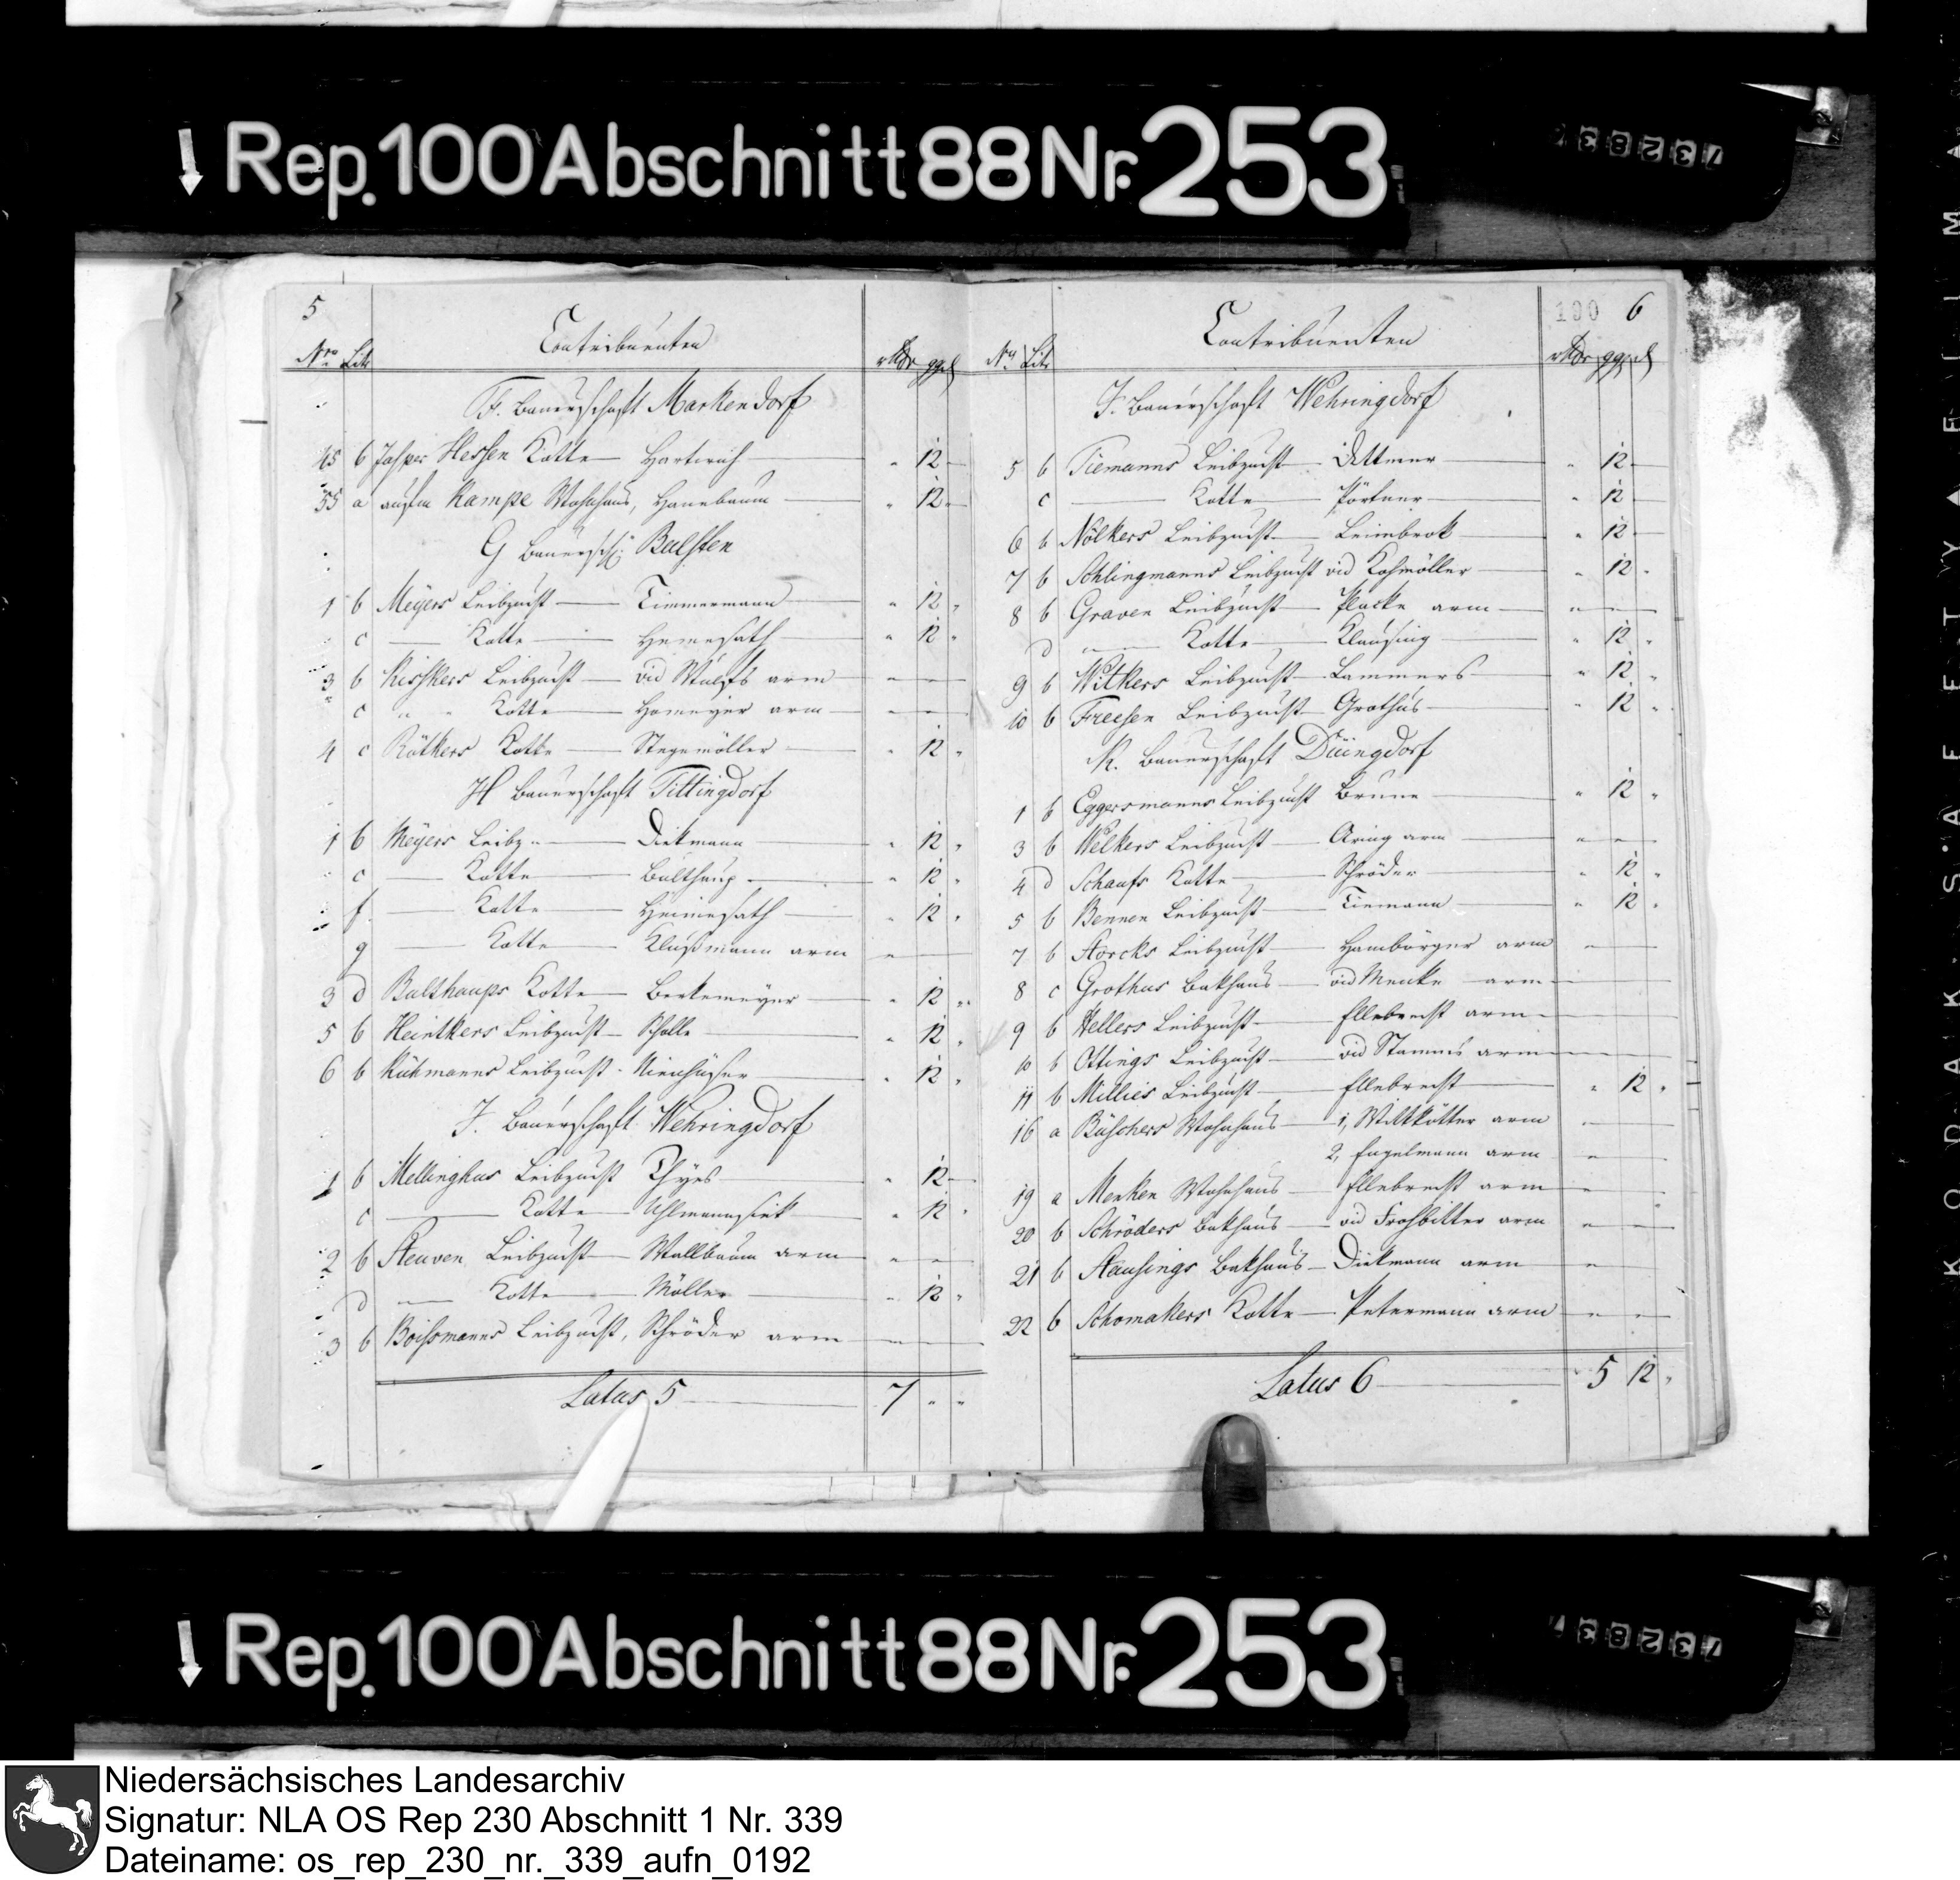 Rep. 100 Abschnitt 88 Nr. 253
73283
5
Contributenten
Nro Litt
rthlr ggl d
F. Bauerschaft Markendorf
45 b Jasper Hessen Kotte — Harterich — " 12 —
55 a aufm Kampe Wohnhaus, Hanebaum — " 12 —
G Bauersch: Bulsten
1 b Meyers Leibzucht — Timmermann — " 12 "
c — Kotte — Hemesath — " 12 "
3 b Kisskers Leibzucht — vid Wulfs arm — " —
c " " Kotte — Homeyer arm — " —
4 c Rötkers Kotte — Stegemöller — " 12 "
H Bauerschaft Tittingdorf
1 b Meyers Leibz.. — Diekmann — " 12 "
c — Kotte — Bülthaup — " 12 "
f — Kotte — Heimesath — " 12 "
g — Kotte — Klußmann arm " —
3 d Bulthaups Kotte — Berkemeyer — " 12 "
5 b Heintkers Leibzucht — Scholle — " 12 "
6 b Kühmanns Leibzucht - Nienhüser — " 12 "
J. Bauerschaft Wehringdorf
1 b Mellinghus Leibzucht Thyes — " 12 —
c — Kotte — Uhlmannsiek — " 12 "
2 b Steuven Leibzucht — Wallbaum arm — " "
d " — Kotte — Möller — " 12 "
3 b Boissmanns Leibzucht, Schröder arm — " —
Latus 5 — 7 " "
100 6
Contribuenten
Nro Litt
rthlr ggl d
J. Bauerschaft Wehringdorf
5 b Tiemanns Leibzucht — Dettmer — " 12 —
c — Kotte — Pörtner — " 12
6 b Nölkers Leibzucht — Leimbrok — " 12 —
7 b Schlingmanns Leibzucht vid Kohmöller — " 12 "
8 b Graven Leibzucht — Placke arm — " —
d " — Kotte — Klausing — " 12 "
9 b Witkers Leibzucht — Lammers — " 12 "
10 b Freesen Leibzucht — Grothus — " 12 "
K. Bauerschaft Düingdorf
1 b Eggersmanns Leibzucht Brune — " 12 "
3 b Welkers Leibzucht — Aring arm — " —
4 d Schaafs Kotte — Schröder — " 12 "
5 b Bennen Leibzucht — Tiemann — " 12 "
7 b Storcks Leibzucht — Hambörger arm " —
8 c Grothus Backhaus — vid Menke — arm —
9 b Hellers Leibzucht — Ellebrecht arm —
10 b Ottings Leibzucht — vid Stamms arm —
11 b Millies Leibzucht — Ellebrecht — " 12 "
16 a Büschers Wohnhaus — 1, Wittkötter arm " —
2, Engelmann arm " —
19 a Menken Wohnhaus — Ellebrecht arm — "
20 b Schröders Backhaus — vid Frohbitter arm " —
21 b Hausings Backhaus — Diekmann arm " —
22 b Schomakers Kotte — Petermann arm — " —
Latus 6 — 5 12 "
Rep. 100 Abschnitt 88 Nr. 253
73283
Niedersächsisches Landesarchiv
Signatur: NLA OS Rep 230 Abschnitt 1 Nr. 339
Dateiname: os_rep_230_nr._339_aufn_0192